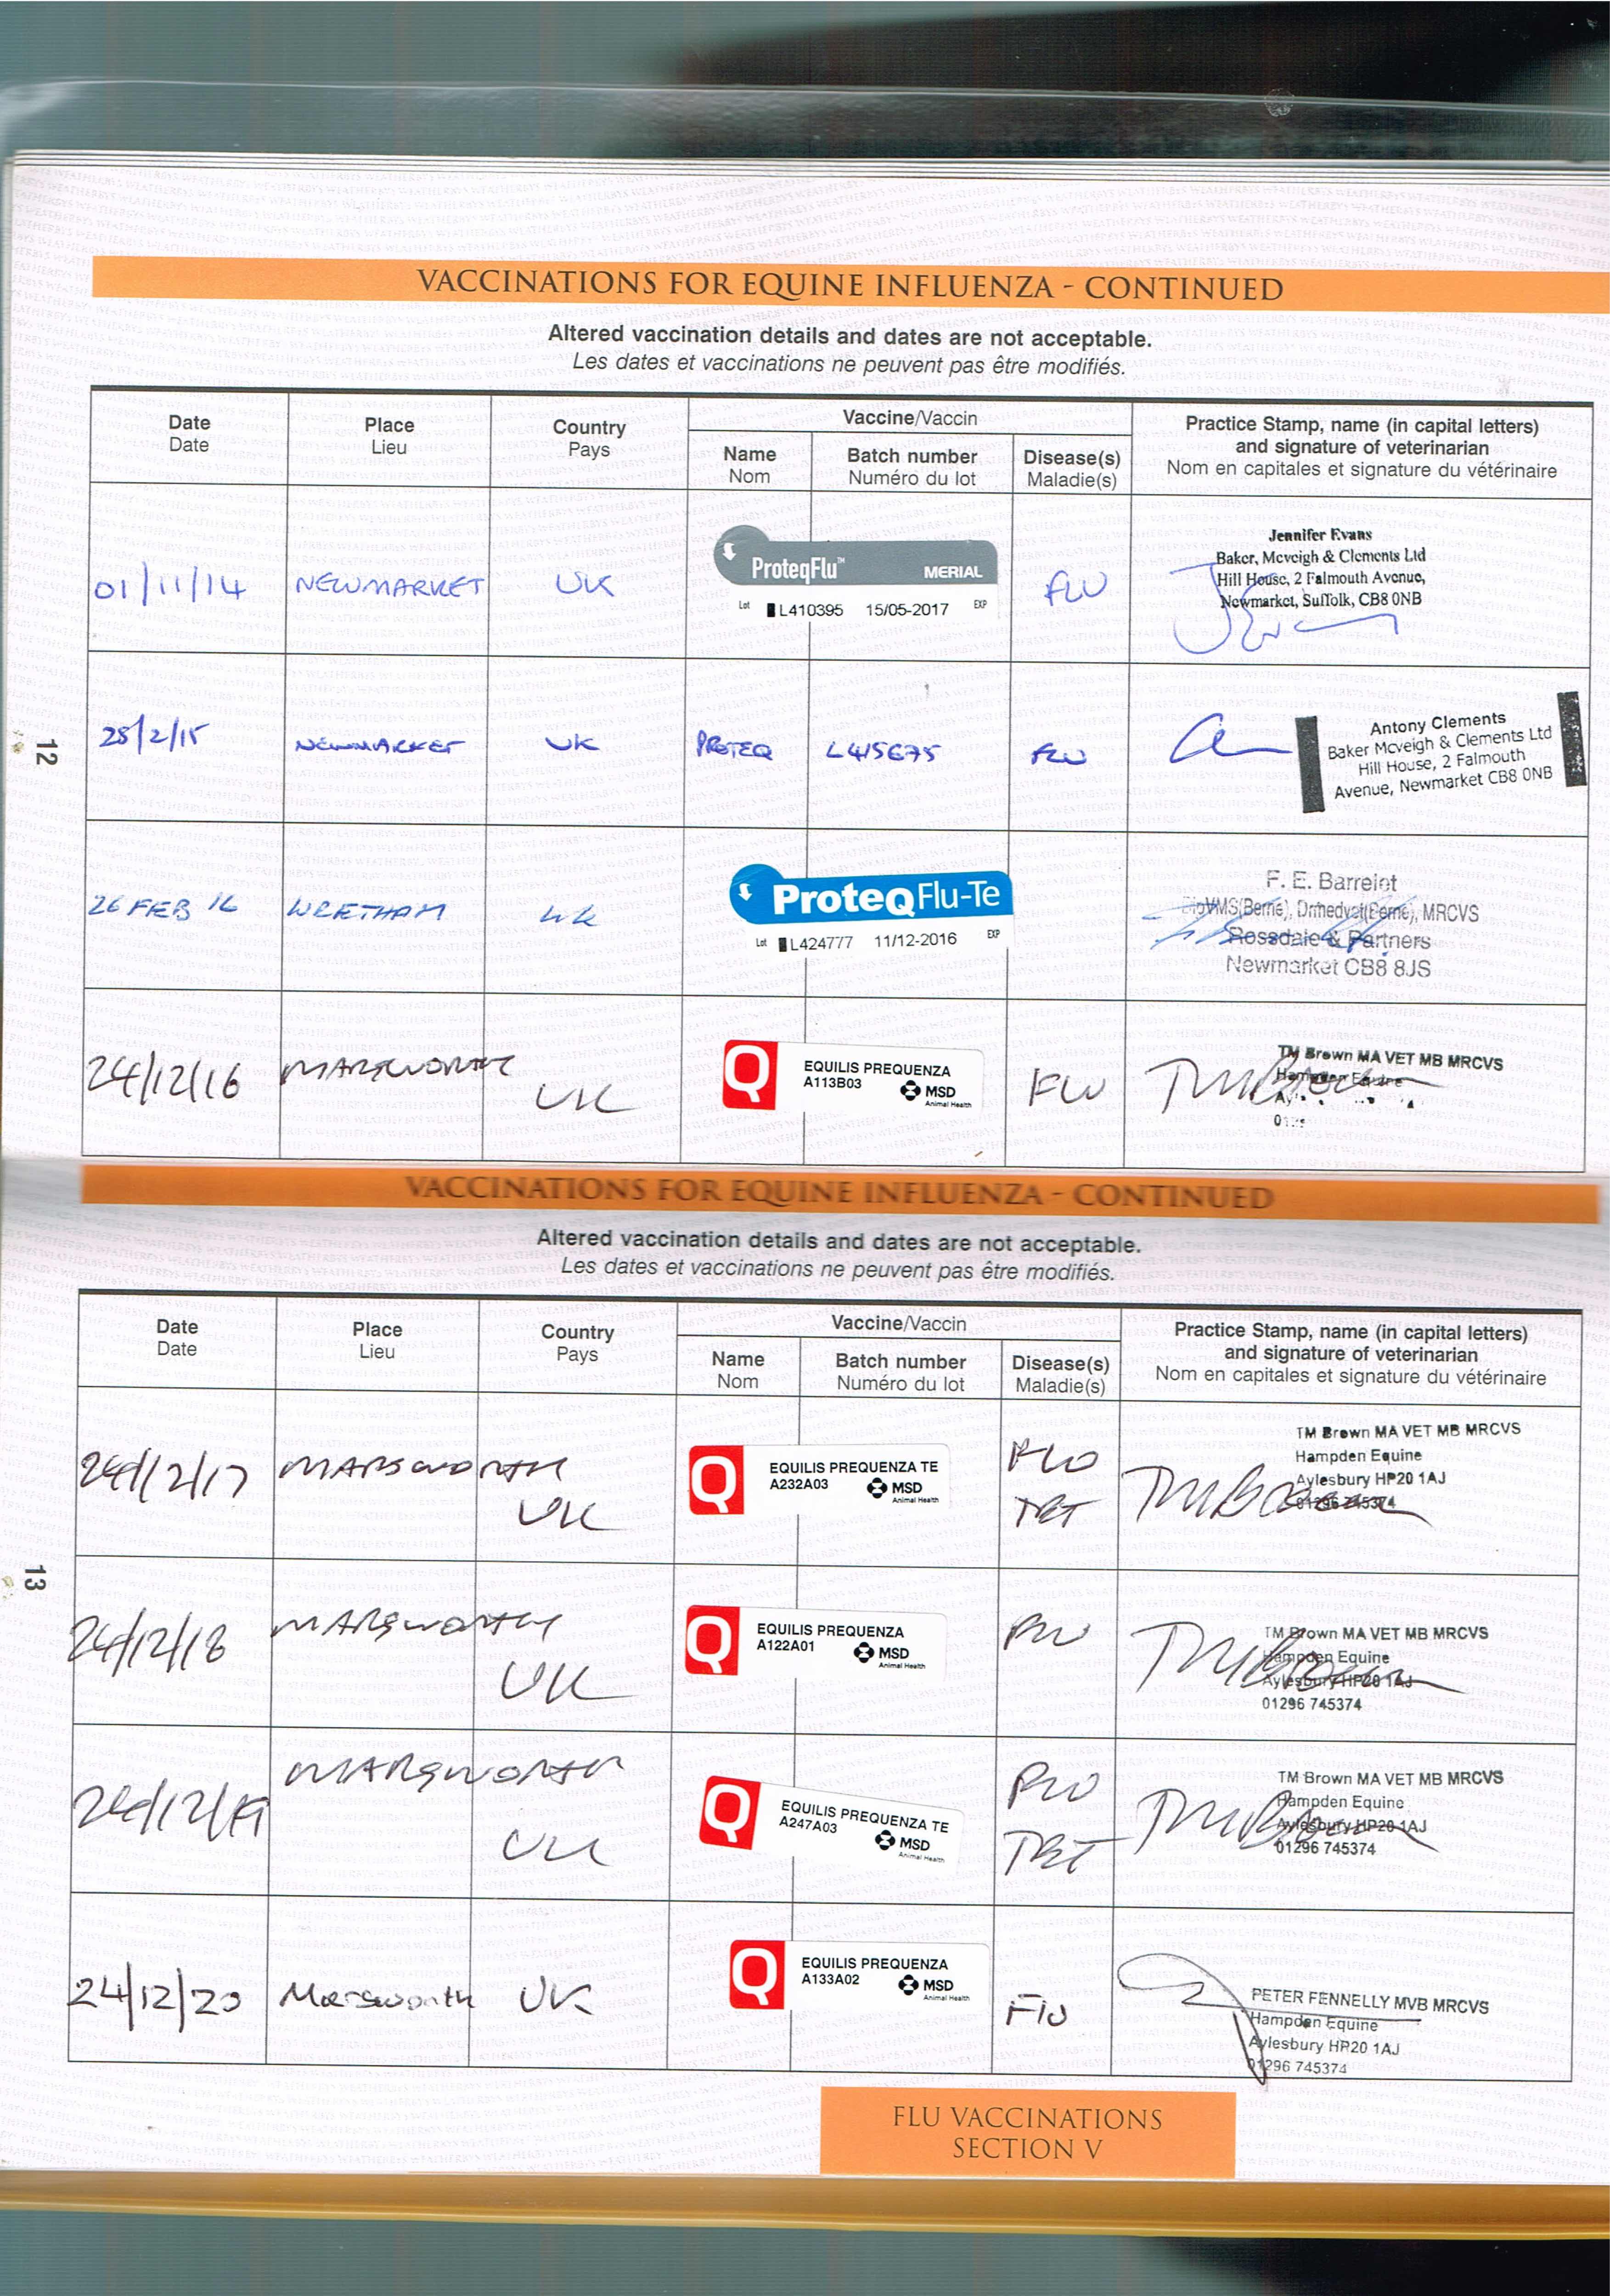 VACCINATIONS FOR EQUINE INFLUENZA - CONTINUED
Altered vaccination details and dates are not acceptable.
Les dates et vaccinations ne peuvent pas être modifiés.
Date Place Country Vaccine/Vaccin Practice Stamp, name (in capital letters)
Date Lieu Pays and signature of veterinarian
Name Batch number Disease(s) Nom en capitales et signature du vétérinaire
Nom Numéro du lot Maladie(s)
01/11/14 NEWMARKET UK ProteqFlu™ MERIAL FLU Jennifer Evans
Lot L410395 15/05-2017 EXP Baker, Mcveigh & Clements Ltd
Hill House, 2 Falmouth Avenue,
Newmarket, Suffolk, CB8 0NB
28/2/15 NEWMARKET UK PROTEQ L415675 FLU Antony Clements
Baker Mcveigh & Clements Ltd
Hill House, 2 Falmouth
Avenue, Newmarket CB8 0NB
12
26 FEB 16 WRETHAM UK ProteqFlu-Te F. E. Barrelet
Lot L424777 11/12-2016 EXP MRCVS
Rossdale & Partners
Newmarket CB8 8JS
24/12/16 MARSWORTH UK EQUILIS PREQUENZA FLU TM Brown MA VET MB MRCVS
A113B03 MSD Hampden Equine
Animal Health
VACCINATIONS FOR EQUINE INFLUENZA - CONTINUED
Altered vaccination details and dates are not acceptable.
Les dates et vaccinations ne peuvent pas être modifiés.
Date Place Country Vaccine/Vaccin Practice Stamp, name (in capital letters)
Date Lieu Pays and signature of veterinarian
Name Batch number Disease(s) Nom en capitales et signature du vétérinaire
Nom Numéro du lot Maladie(s)
24/12/17 MARSWORTH UK EQUILIS PREQUENZA TE FLU TM Brown MA VET MB MRCVS
A232A03 MSD TET Hampden Equine
Animal Health Aylesbury HP20 1AJ
01296 745374
13
24/12/18 MARSWORTH UK EQUILIS PREQUENZA FLU TM Brown MA VET MB MRCVS
A122A01 MSD Hampden Equine
Animal Health Aylesbury HP20 1AJ
01296 745374
24/12/19 MARSWORTH UK EQUILIS PREQUENZA TE FLU TM Brown MA VET MB MRCVS
A247A03 MSD TET Hampden Equine
Animal Health Aylesbury HP20 1AJ
01296 745374
24/12/20 Marsworth UK EQUILIS PREQUENZA Flu PETER FENNELLY MVB MRCVS
A133A02 MSD Hampden Equine
Animal Health Aylesbury HP20 1AJ
01296 745374
FLU VACCINATIONS
SECTION V